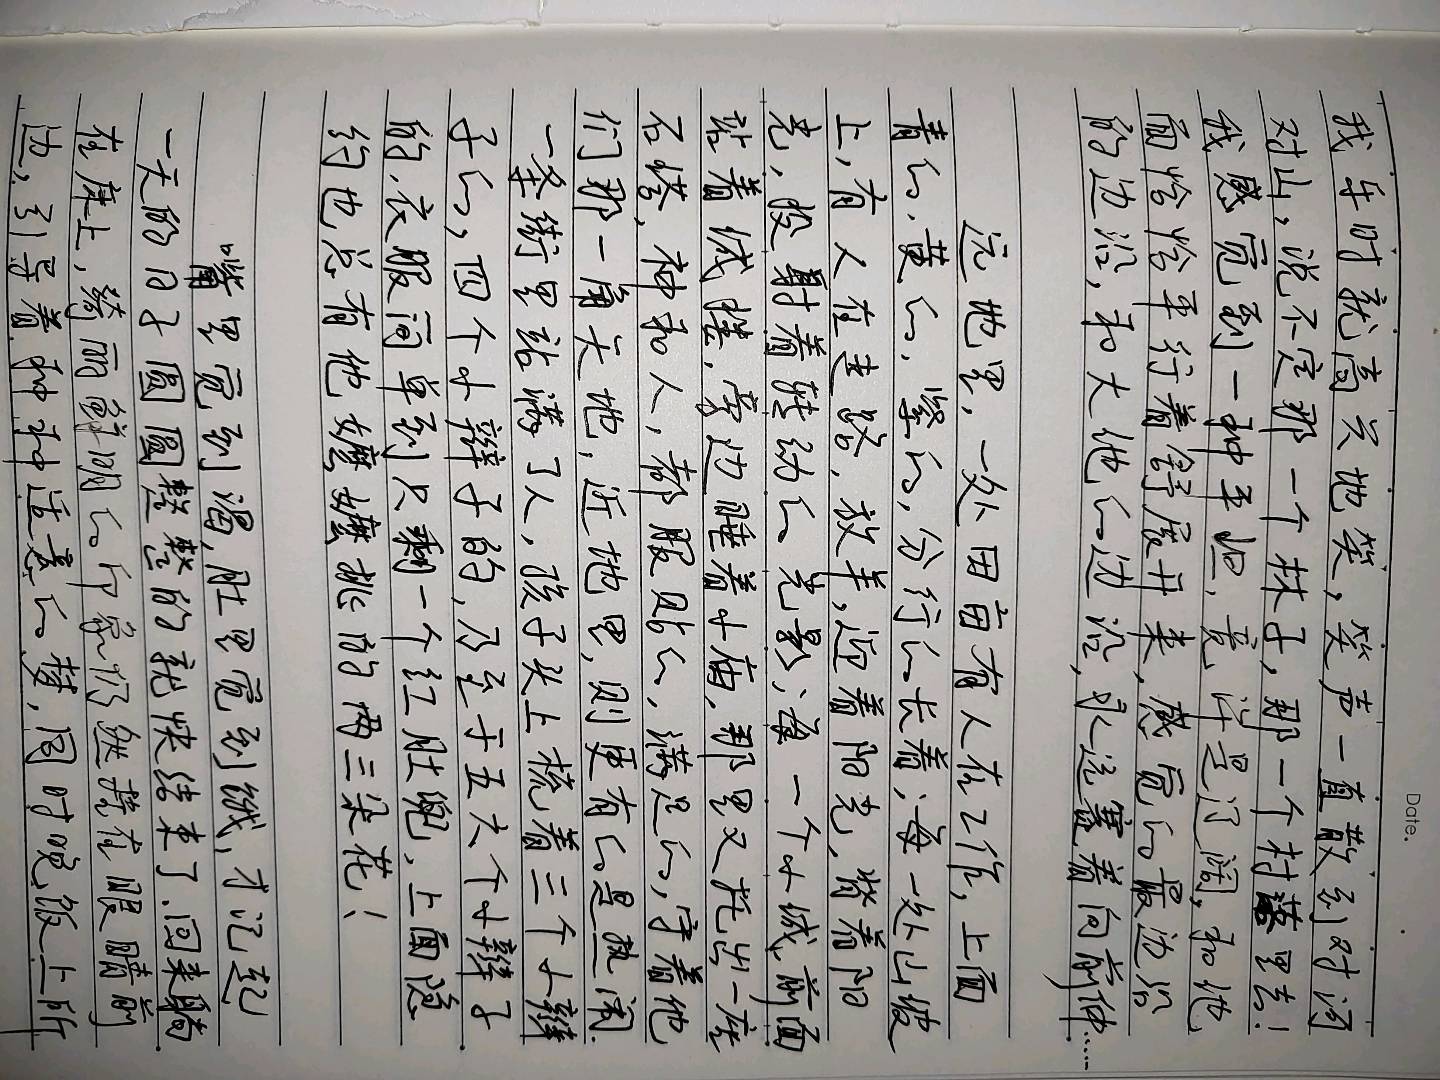 Date.
我乐时就高兴地笑，笑声一直散到对河
对山，说不定那一个林子，那一个村落里去！
我感觉到一种平坦，竟许是辽阔，和地
面恰恰平行着舒展开来，感觉的最边沿
的边沿，和大地的边沿，永远赛着向前伸……
远地里，一处田亩有人在工作，上面
青的，黄的，紫的，分行的长着；每一处山坡
上，有人在走路，放羊，迎着阳光，背着阳
光，投射着转动的光影；每一个小城，前面
站着城楼，旁边睡着小庙，那里又托出一座
石塔，神和人，都服贴的，满足的，守着他
们那一角天地，近地里，则更有的是热闹，
一条街里站满了人，孩子头上梳着三个小辫
子的，四个小辫子的，乃至于五六个小辫子
的，衣服简单到只剩一个红肚兜，上面隐
约也总有他嬷嬷挑的两三朵花！
嘴里觉到渴，肚里觉到饿，才记起
一天的日子圆圆整整的就快结束了．回来躺
在床上，绮丽鲜明的印象仍然挂在眼睛前
边，引导着种种适意的梦，同时晚饭上所